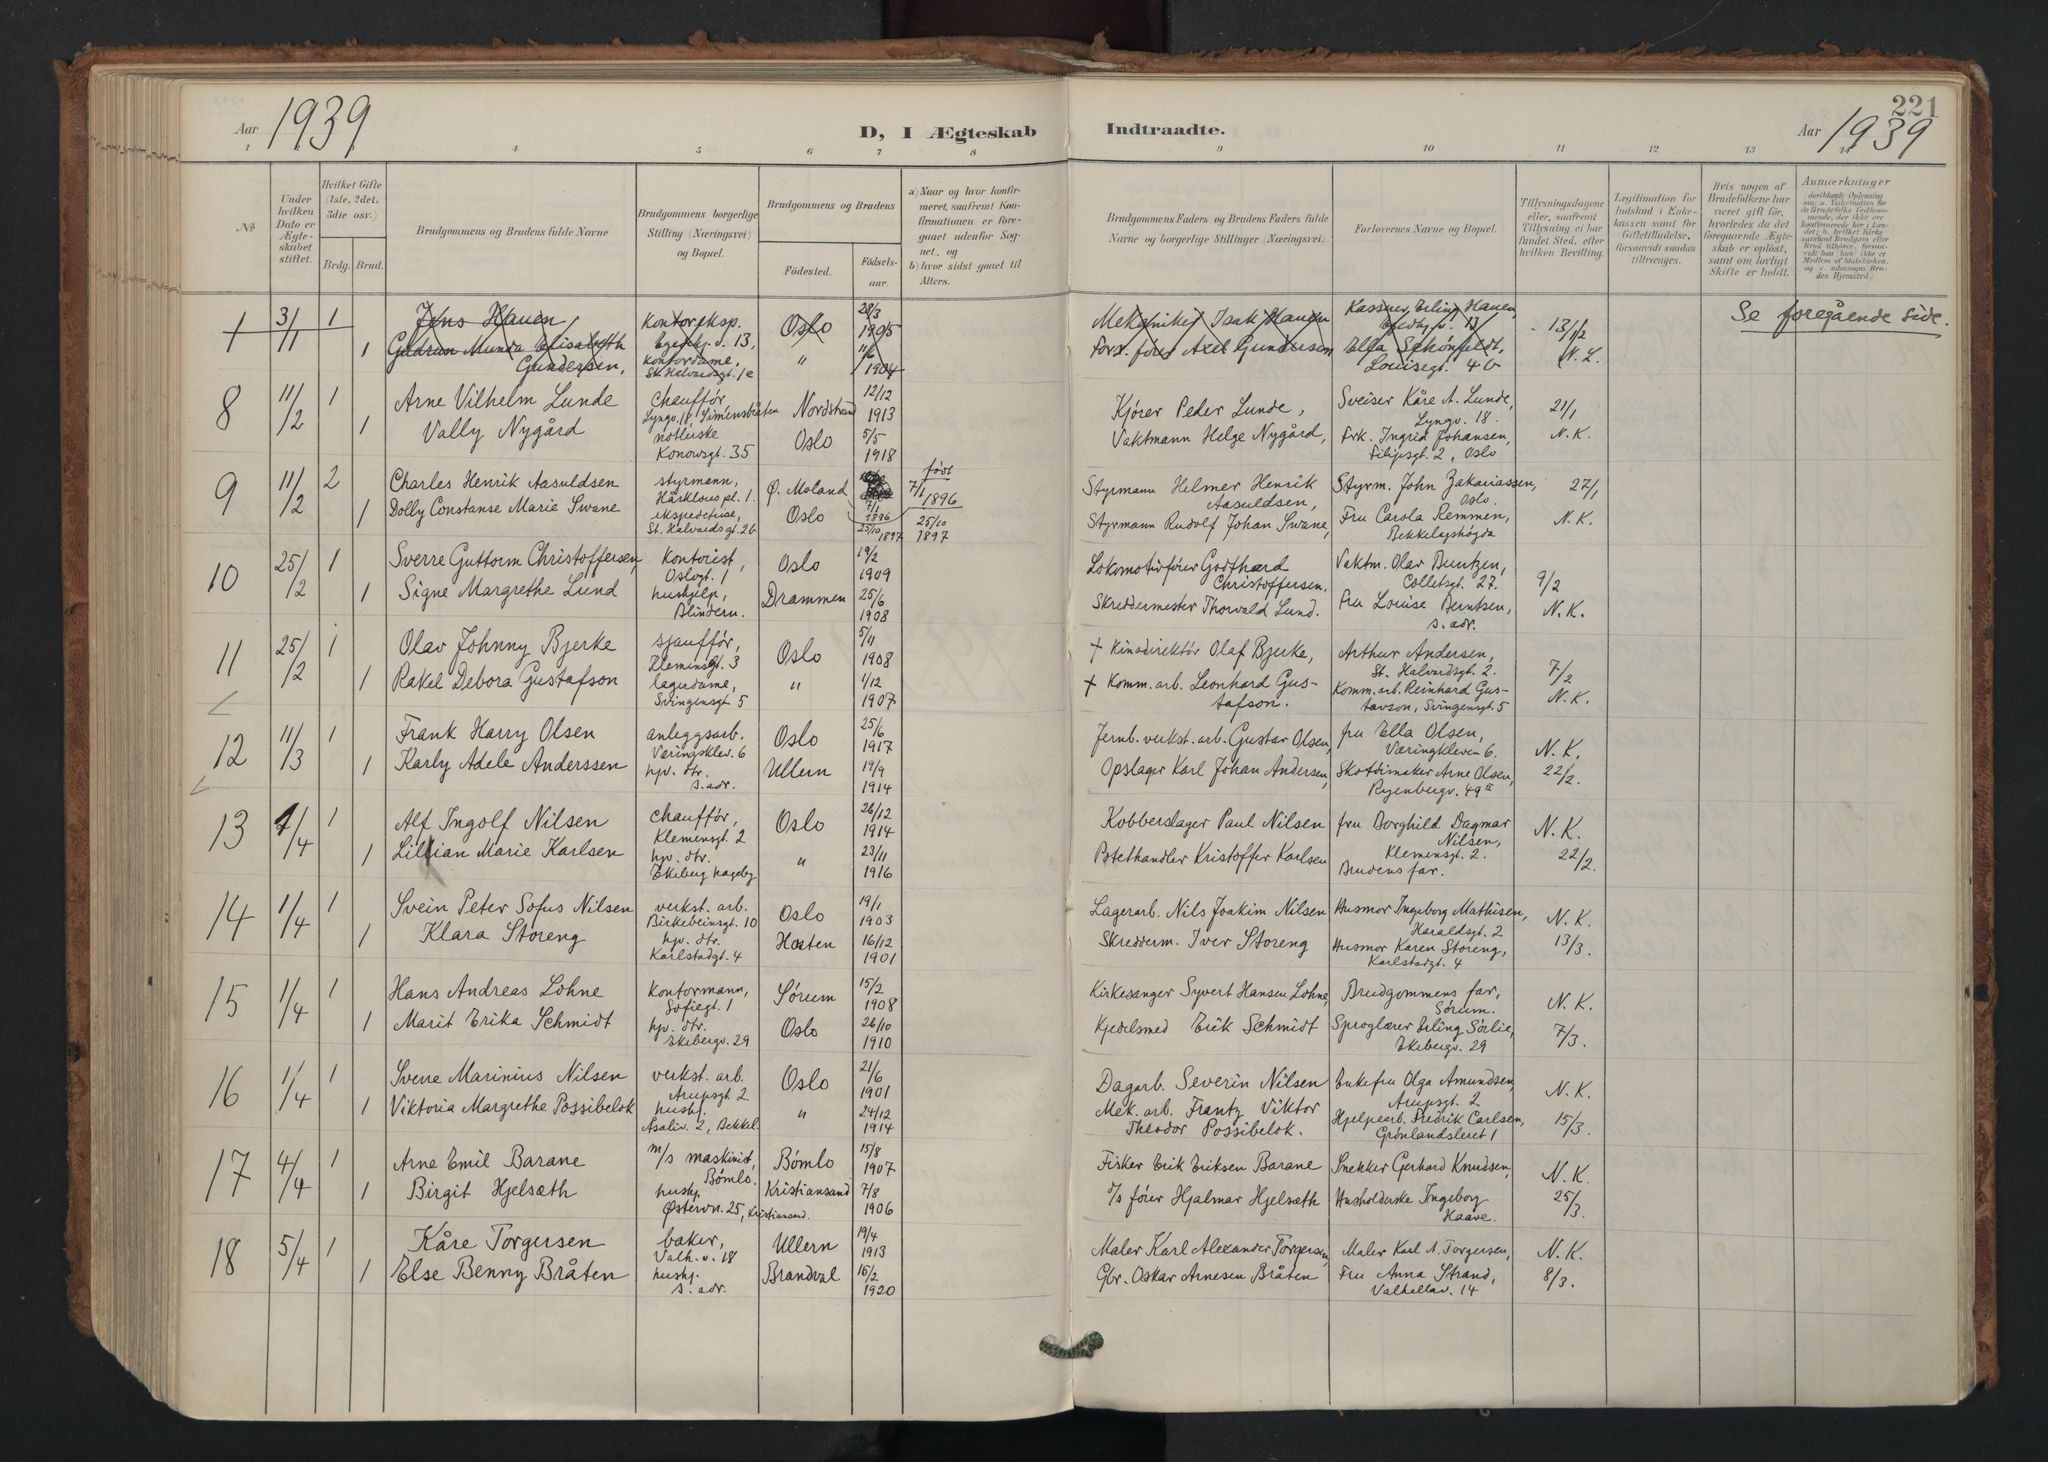 221
Aar 1939
D, I Ægteskab Indtraadte.
Aar 1939
1 4 5 6 7 8 9 10 11 12 13 14
No
Under hvilken Dato er Ægteskabet stiftet.
Hvilket Gifte (1ste, 2det, 3die osv.)
Brdg. Brud.
Brudgommens og Brudens fulde Navne
Brudgommens borgerlige Stilling (Næringsvei) og Bopæl.
Brudgommens og Brudens
Fødested. Fødselsaar.
a) Naar og hvor konfirmeret, saafremt Konfirmationen er foregaaet udenfor Sognet, og
b) hvor sidst gaaet til Alters.
Brudgommens Faders og Brudens Faders fulde Navne og borgerlige Stillinger (Næringsvei)
Forlovernes Navne og Bopæl.
Tillysningsdagene eller, saafremt Tillysning ei har fundet Sted, efter hvilken Bevilling.
Legitimation for Indskud i Enkekassen samt for Giftetilladelse, forsaavidt saadan tiltrænges.
Hvis nogen af Brudefolkene har været gift før, hvorledes da det foregaaende Ægteskab er opløst, samt om lovligt Skifte er holdt.
Anmærkninger
1 3/1 1 Jens Hauen kontoreksp. Egebg. v. 13, Oslo 28/3 1905 Mekaniker Isak Hauen Kasserer Erling Hauen, Egebg. v. 13 13/12 Se foregående side.
1 Gudrun Munda Elisabeth Gundersen, kontordame, St. Halvardsgt. 1e " 11/6 1904 Forr. fører Axel Gundersen Ella Schønfeldt, Louisegt. 4b N. L.
8 11/2 1 Arne Vilhelm Lunde chauffør, Lyngv. 18, Simensbråten Nordstrand 12/12 1913 Kjører Peder Lunde, Sveiser Kåre A. Lunde, Lyngv. 18. 21/1
1 Vally Nygård Konowsgt. 35 Oslo 5/5 1918 Vaktmann Helge Nygård, Frk. Ingrid Johansen, Filipsgt. 2, Oslo N. K.
9 11/2 2 Charles Henrik Aasuldsen styrmann, Hårklous pl. 1. Ø. Moland 7/1 1896 født 7/1 1896 Styrmann Helmer Henrik Aasuldsen, Styrm. John Zakariassen, Oslo. 27/1
1 Dolly Constanse Marie Swane ekspeditrise, St. Halvards gt. 26 Oslo 25/10 1897 25/10 1897 Styrmann Rudolf Johan Swane, Fru Carola Remmen, Bekkelagshøgda N. K.
10 25/2 1 Sverre Guttorm Christoffersen, kontorist, Oslogt. 1 Oslo 19/2 1909 Lokomotivfører Godthard Christoffersen, Vaktm. Olav Buntzen, Colletsgt. 27. 9/2
1 Signe Margrethe Lund hushjelp, Blindern. Drammen 25/6 1908 Skreddermester Thorvald Lund. Fru Louise Berntsen, s. adr. N. K.
11 25/2 1 Olav Johnny Bjerke sjauffør, Klemensgt. 3 Oslo 5/11 1908 + Kinodirektør Olaf Bjerke, Arthur Andersen, St. Halvardsgt. 2. 7/2
1 Rakel Debora Gustafson lagerdame, Svingensgt. 5 " 1/12 1907 + Komm. arb. Leonhard Gustafson. Komm. arb. Reinhard Gustavson, Svingensgt. 5 N. K.
12 11/3 1 Frank Harry Olsen anleggsarb. Væringsklev. 6 Oslo 25/6 1917 Jernb. verkst. arb. Gustav Olsen, fru Ella Olsen, Væringkleven 6. N. K.
1 Karly Adele Anderssen hjv. dtr. s. adr. Ullern 19/9 1914 Opslager Karl Johan Andersen, Skotøimaker Arne Olsen, Ryenbergv. 49 II 22/2.
13 1/4 1 Alf Ingolf Nilsen chauffør, Klemensgt. 2 Oslo 26/12 1914 Kobberslager Paul Nilsen fru Borghild Dagmar Nilsen, Klemensgt. 2. N. K.
1 Lillian Marie Karlsen hjv. dtr. Ekeberg hageby " 23/11 1916 Potethandler Kristoffer Karlsen Brudens far. 22/2.
14 1/4 1 Svein Peter Sofus Nilsen verkst. arb. Birkebeinsgt. 10 Oslo 19/1 1903 Lagerarb. Nils Joakim Nilsen Husmor Ingeborg Mathisen, Haraldsgt. 2 N. K.
1 Klara Storeng hjv. dtr. Karlstadgt. 4 Horten 16/12 1901 Skredderm. Iver Storeng Husmor Karen Storeng, Karlstadgt. 4 13/3.
15 1/4 1 Hans Andreas Lohne kontormann, Sofiegt. 1 Sørum 15/2 1908 Kirkesanger Syvert Hansen Lohne, Brudgommens far, Sørum. N. K.
1 Marit Erika Schmidt hjv. dtr. Ekebergv. 29 Oslo 26/10 1910 Kjedelsmed Erik Schmidt Sproglærer Erling Sørlie, Ekebergv. 29 7/3.
16 1/4 1 Sverre Marinius Nilsen verkst. arb. Arupsgt. 2 Oslo 21/6 1901 Dagarb. Severin Nilsen Enkefru Olga Amundsen, Arupsgt. 2 N. K.
1 Viktoria Margrethe Possibelok hushj. Asaliv. 2, Bekkel. " 24/12 1914 Mek. arb. Frantz Viktor Theodor Possibelok. Hjelpearb. Fredrik Carlsen, Grønlandsleret 1 15/3.
17 4/4 1 Arne Emil Barane m/s maskinist, Bømlo. Bømlo 15/8 1907 Fisker Erik Eriksen Barane Snekker Gerhard Knudsen, N. K.
1 Birgit Hjelsæth hushj. Østervn. 25, Kristiansand. Kristiansand 7/8 1906 d/s fører Hjalmar Hjelsæth Husholderske Ingeborg Haave. 25/3.
18 5/4 1 Kåre Torgersen baker, Valh. v. 18 Ullern 19/4 1913 Maler Karl Alexander Torgersen, Maler Karl A. Torgersen, N. K.
1 Else Benny Bråten hushj. s. adr. Brandval 15/2 1920 Gbr. Oskar Arnesen Bråten Fru Anna Strand, Valhallav. 14 8/3.